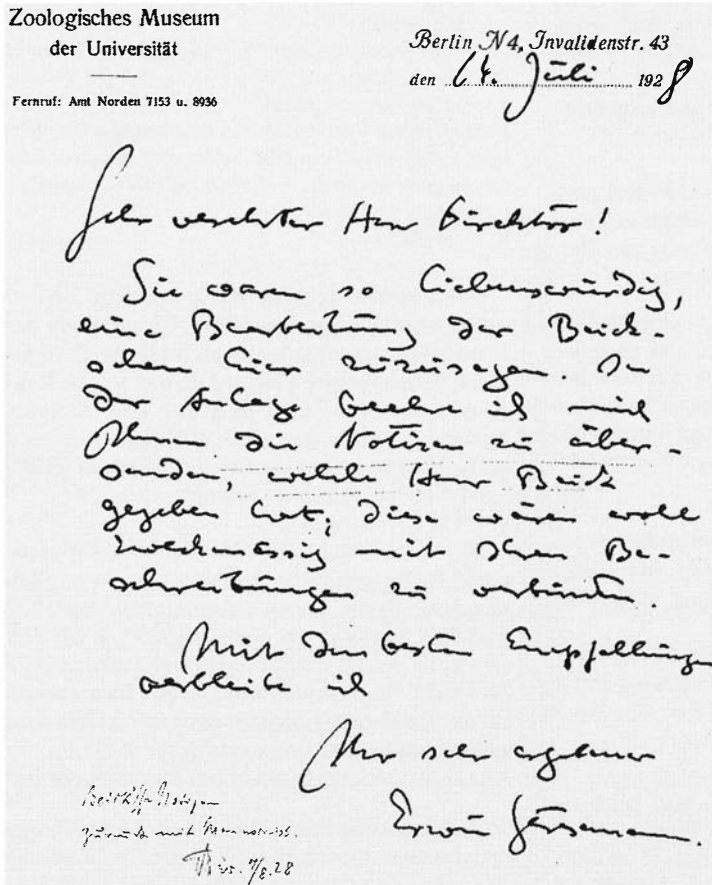 Zoologisches Museum
der Universität
Fernruf: Amt Norden 7153 u. 8936
Berlin N4, Invalidenstr. 43
den 14. Juli 1928
Sehr verehrter Herr Direktor!
Sie waren so liebenswürdig,
eine Bearbeitung der Beick
schen Eier zuzusagen. In
der Anlage beehre ich mich
Ihnen die Notizen zu über-
senden, welche Herr Beick
gegeben hat; diese wären wohl
zweckmässig mit Ihren Be-
schreibungen zu verbinden.
Mit den besten Empfehlungen
verbleibe ich
Ihr sehr ergebener
Erwin Stresemann.
zurück mit Manuskript.
/8.28